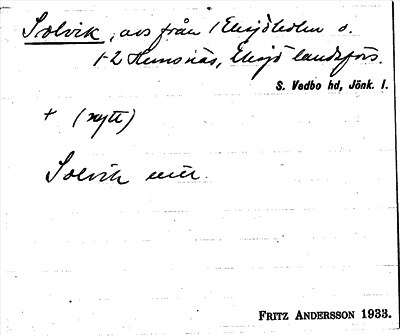 Solvik, avs från 1 Eksjöholm o.
1-2 Hunsnäs, Eksjö landsförs.
S. Vedbo hd, Jönk. l.
+ (nytt)
Solvik
FRITZ ANDERSSON 1933.